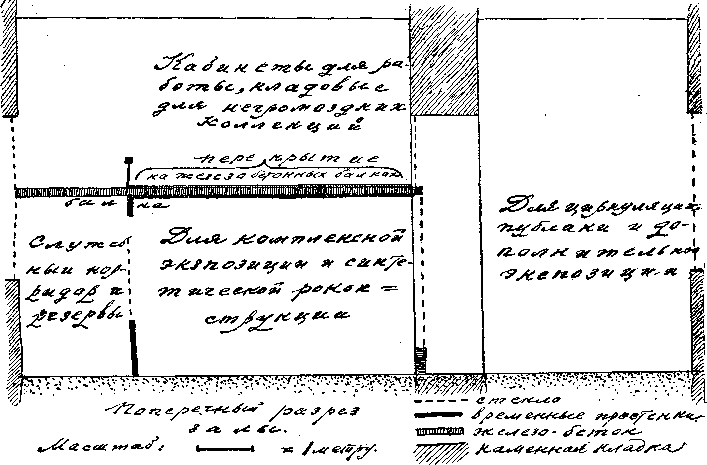 Кабинеты для ра-
боты, кладовые
для негромоздких
коллекций
перекрытие
на железобетонных балках
балка
Служеб
ный кор-
ридор и
резервы
Для комплексной
экспозиции и синте-
тической рекон=
струкции
Для циркуляции
публики и до-
полнительной
экспозиции
Поперечный разрез
залы.
Масштаб: = 1 метру.
стекло
временные простенки
железо-бетон
каменная кладка